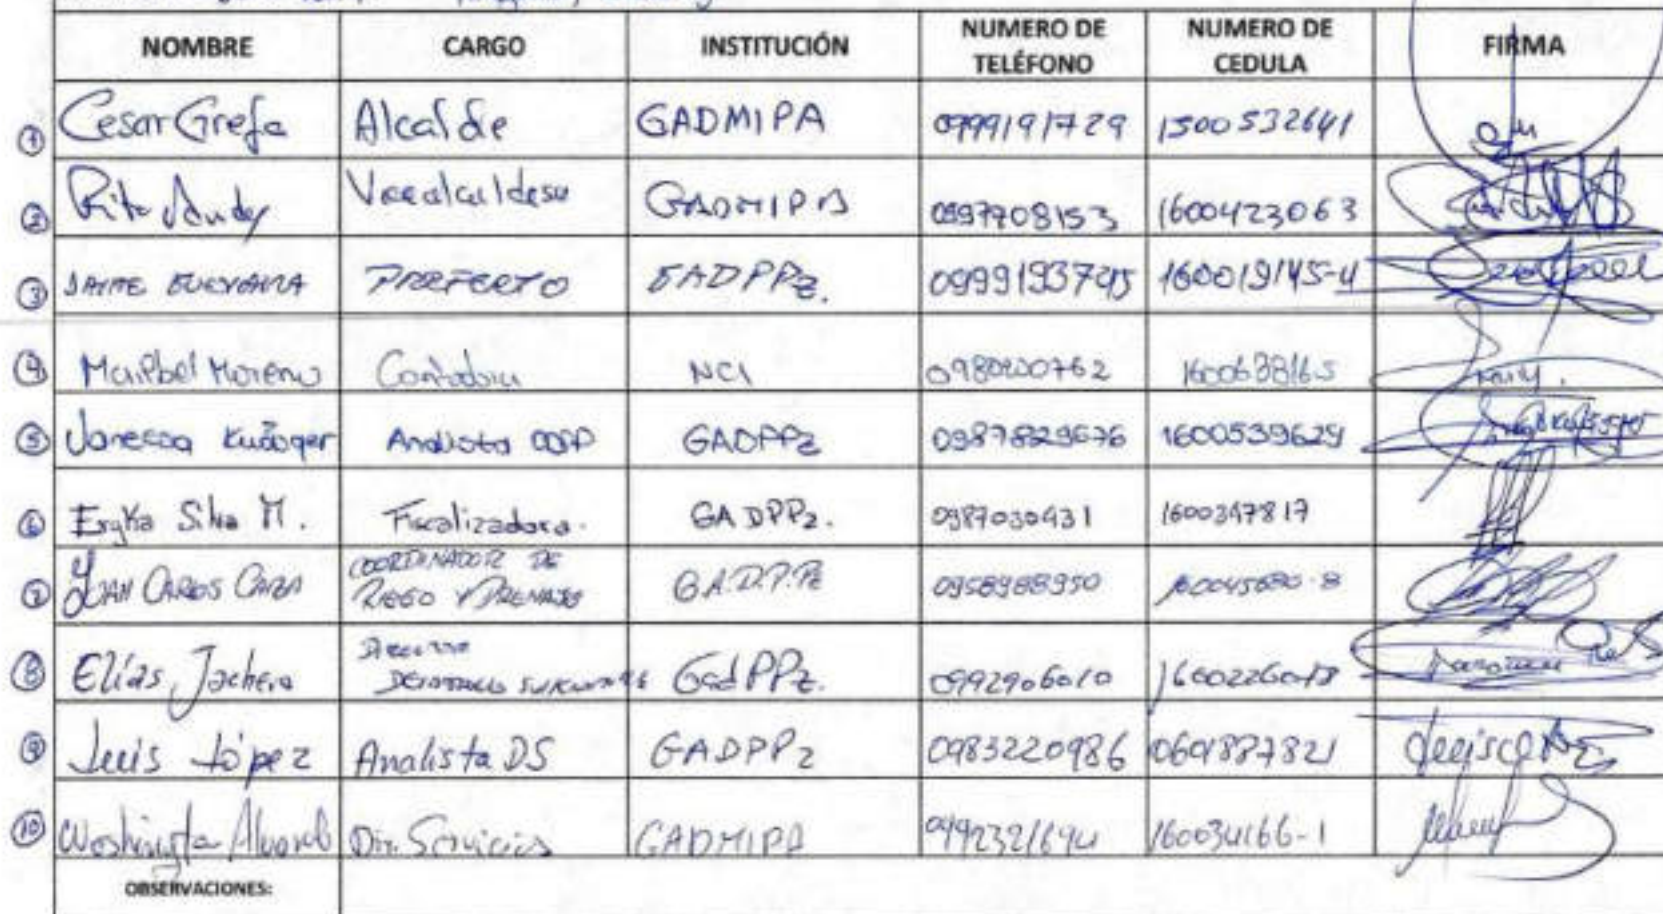 NOMBRE CARGO INSTITUCIÓN NUMERO DE TELÉFONO NUMERO DE CEDULA FIRMA
1 Cesar Grefa Alcalde GADMIPA 0999191729 1500532641
2 Rita Andy Vicealcaldesa GADMIPA 0997708153 1600423063
3 JAIME GUEVARA PREFECTO GADPPz. 0999193795 160019145-4
4 Maribel Moreno Contadora NCI 0980200762 160063816-5
5 Vanessa Analista GADPPz 0987829676 1600539629
6 Eryka Silva M. Fiscalizadora. GADPPz. 0987030431 1600347817
7 JUAN CARLOS COORDINADOR DE RIEGO Y DRENAJE G.A.D.P.Pz 0958988950
8 Elías Jachero DESARROLLO SUSTENTABLE GadPPz. 0992906010
9 Luis López Analista DS GADPPz 0983220986 0601887821
10 Washington Dir. Servicios GADMIPA 0992321694 160034166-1
OBSERVACIONES: